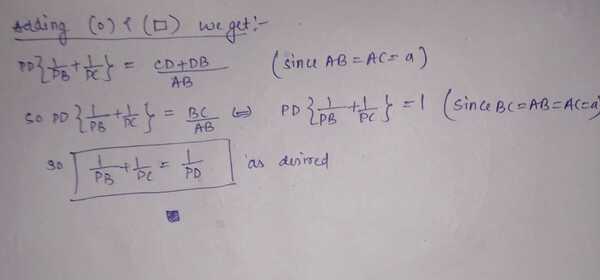 Adding (o) & (□) we get:-
PD{1/PB + 1/PC} = CD+DB/AB (since AB = AC = a)
so PD{1/PB + 1/PC} = BC/AB ⇔ PD{1/PB + 1/PC} = 1 (since BC=AB=AC=a)
so 1/PB + 1/PC = 1/PD as desired